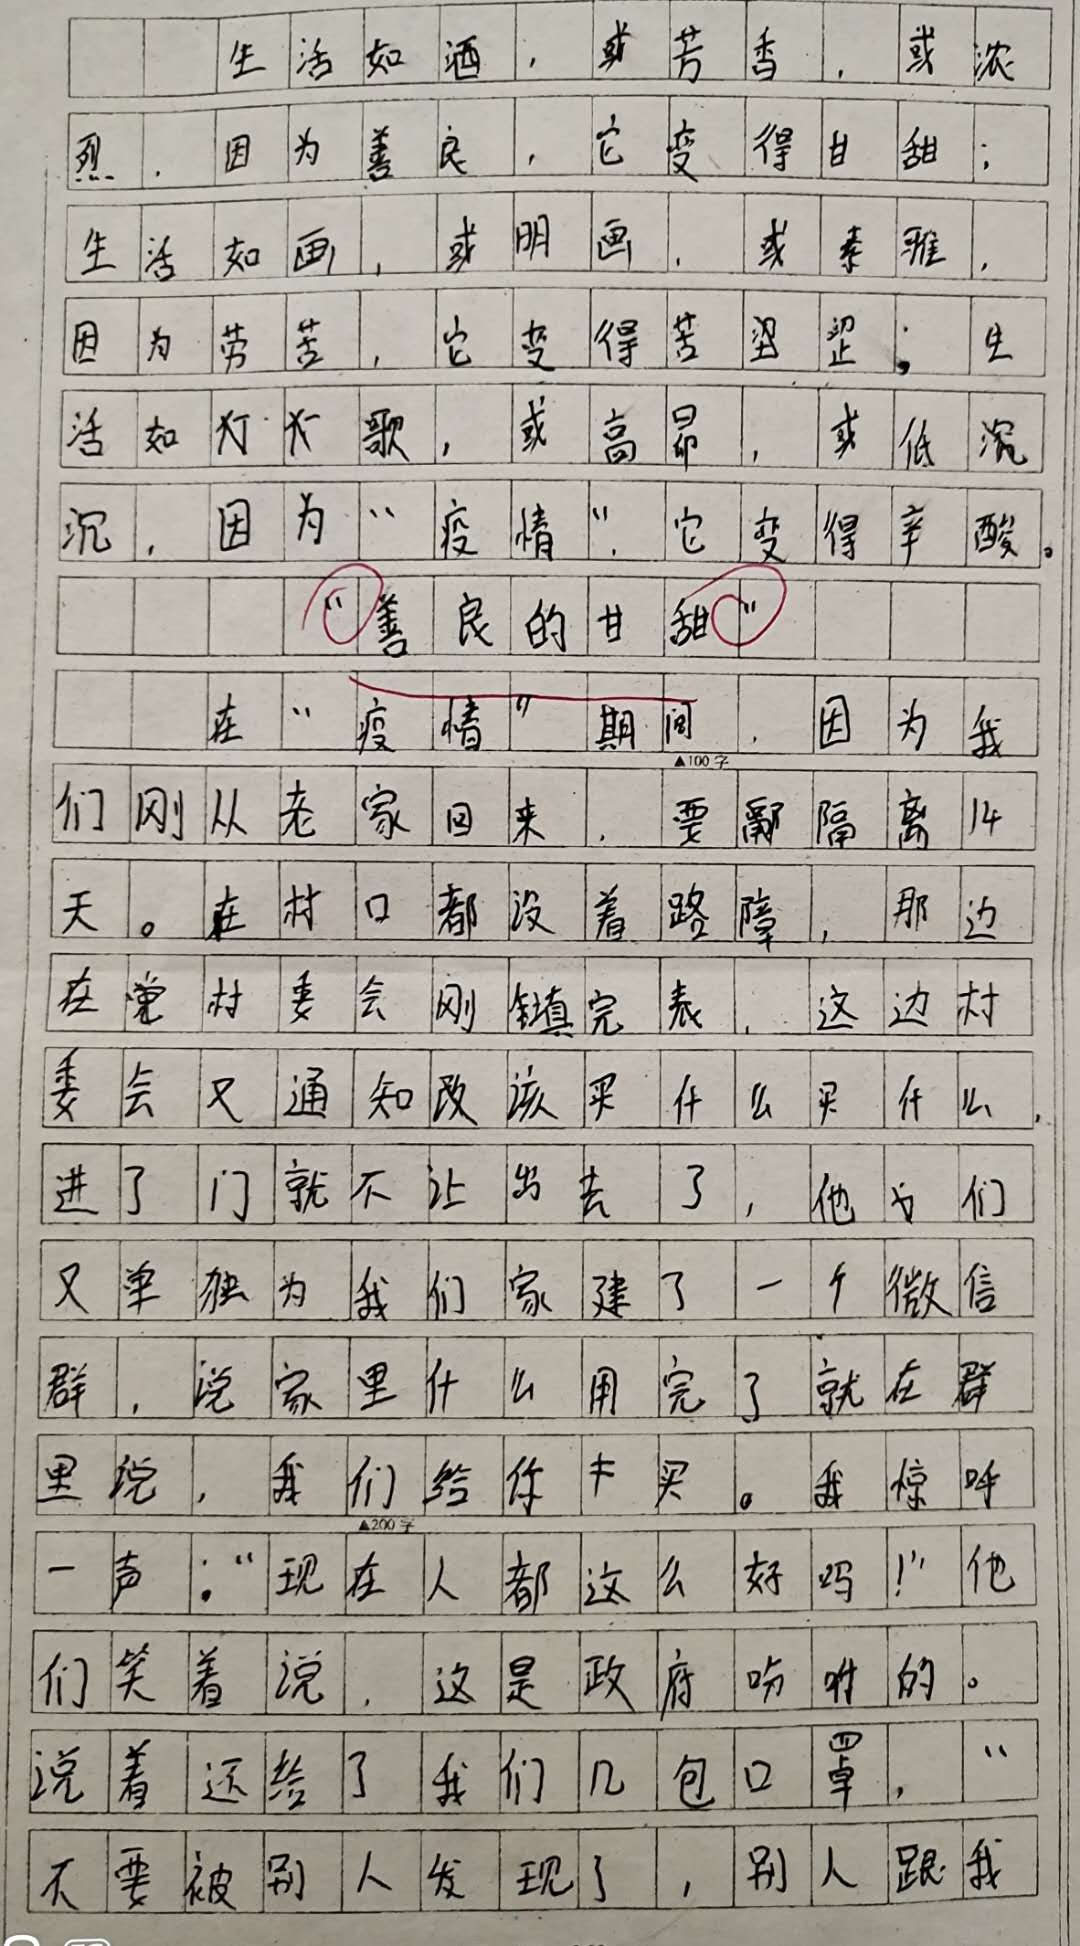 生活如酒，或芳香，或浓
烈，因为善良，它变得甘甜；
生活如画，或明画，或素雅，
因为劳苦，它变得苦涩；生
活如歌，或高昂，或低沉
沉，因为“疫情”，它变得辛酸。
“善良的甘甜”
在“疫情”期间，因为我
▲100字
们刚从老家回来，要隔离14
天。在村口都设着路障，那边
在党村委会刚填完表，这边村
委会又通知改该买什么买什么，
进了门就不让出去了，他们
又单独为我们家建了一个微信
群，说家里什么用完了就在群
里说，我们给你买。我惊呼
▲200字
一声：“现在人都这么好吗！”他
们笑着说，这是政府吩咐的。
说着还给了我们几包口罩，“
不要被别人发现了，别人跟我